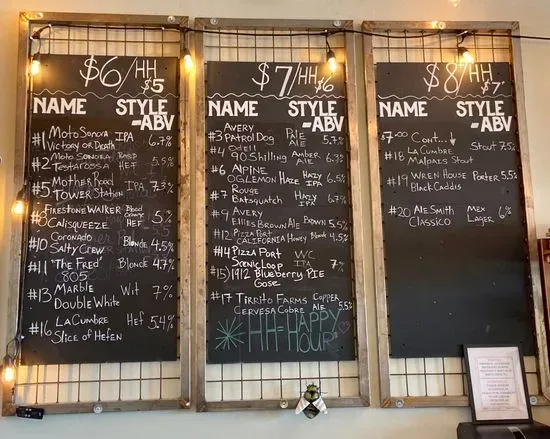 $6/HH $5
NAME STYLE
-ABV
#1 Moto Sonora IPA 6.7%
Victory or Death
#2 Moto Sonora 5.5%
Testarossa Hef
#5 Mother Road IPA 7.3%
Tower Station
#8 Firestone Walker Blood Orange 5%
Calisqueeze Hef
#10 Coronado Blonde 4.5%
Salty Crew
#11 "The Fred" Blonde 4.7%
805
#13 Marble Wit 7%
Double White
#16 La Cumbre Hef 5.4%
Slice of Hefen
$7/HH $6
NAME STYLE
-ABV
#3 Avery Pale Ale 5.7%
Patrol Dog
#4 Odell Amber Ale 6.3%
90 Shilling
#6 Alpine Hazy IPA 6.5%
OG Lemon Haze
#7 Rouge Hazy IPA 6.7%
Batsquatch
#9 Avery
Ellies Brown Ale Brown 5.5%
#12 Pizza Port
California Honey Blonde 4.5%
#14 Pizza Port WC IPA 7%
Scenic Loop
#15) 1912 Blueberry Pie
Gose
#17 Tirrito Farms Copper Ale 5.5%
Cervesa Cobre
HH-HAPPY
HOUR
$8/HH $7
NAME STYLE
-ABV
$7.00 Cont...↓
#18 La Cumbre Stout 7.5%
Malpais Stout
#19 Wren House Porter 5.5%
Black Caddis
#20 AleSmith Mex Lager 6%
Classico